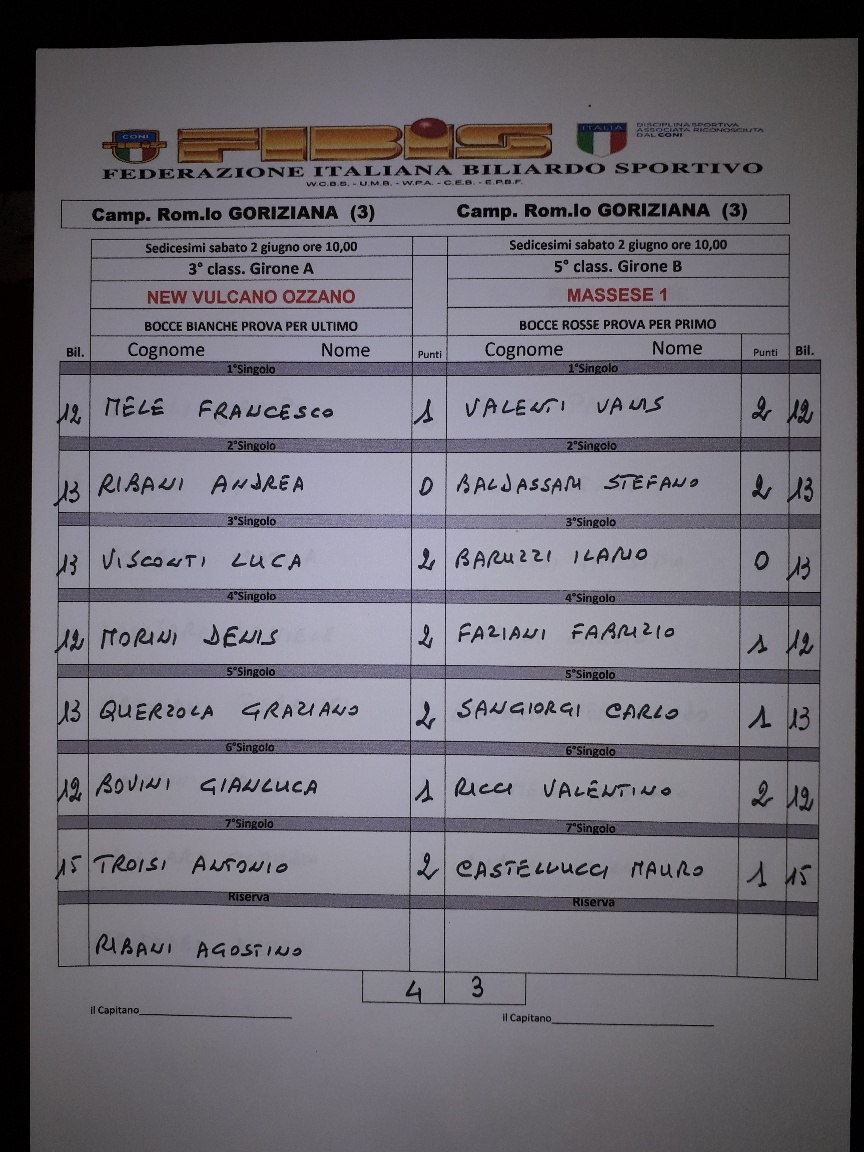 CONI
FIBIS
ITALIA
DISCIPLINA SPORTIVA
ASSOCIATA RICONOSCIUTA
DAL CONI
FEDERAZIONE ITALIANA BILIARDO SPORTIVO
W.C.B.S. - U.M.B. - W.P.A. - C.E.B. - E.P.B.F.
Camp. Rom.lo GORIZIANA (3) Camp. Rom.lo GORIZIANA (3)
Sedicesimi sabato 2 giugno ore 10,00 Sedicesimi sabato 2 giugno ore 10,00
3° class. Girone A 5° class. Girone B
NEW VULCANO OZZANO MASSESE 1
BOCCE BIANCHE PROVA PER ULTIMO BOCCE ROSSE PROVA PER PRIMO
Bil. Cognome Nome Punti Cognome Nome Punti Bil.
1°Singolo 1°Singolo
12 MELE FRANCESCO 1 VALENTI VANIS 2 12
2°Singolo 2°Singolo
13 RIBANI ANDREA 0 BALDASSARI STEFANO 2 13
3°Singolo 3°Singolo
13 VISCONTI LUCA 2 BARUZZI ILARIO 0 13
4°Singolo 4°Singolo
12 MORINI DENIS 2 FAZIANI FABRIZIO 1 12
5°Singolo 5°Singolo
13 QUERZOLA GRAZIANO 2 SANGIORGI CARLO 1 13
6°Singolo 6°Singolo
12 BOVINI GIANLUCA 1 RICCI VALENTINO 2 12
7°Singolo 7°Singolo
15 TROISI ANTONIO 2 CASTELLUCCI MAURO 1 15
Riserva Riserva
RIBANI AGOSTINO
4 3
Il Capitano Il Capitano